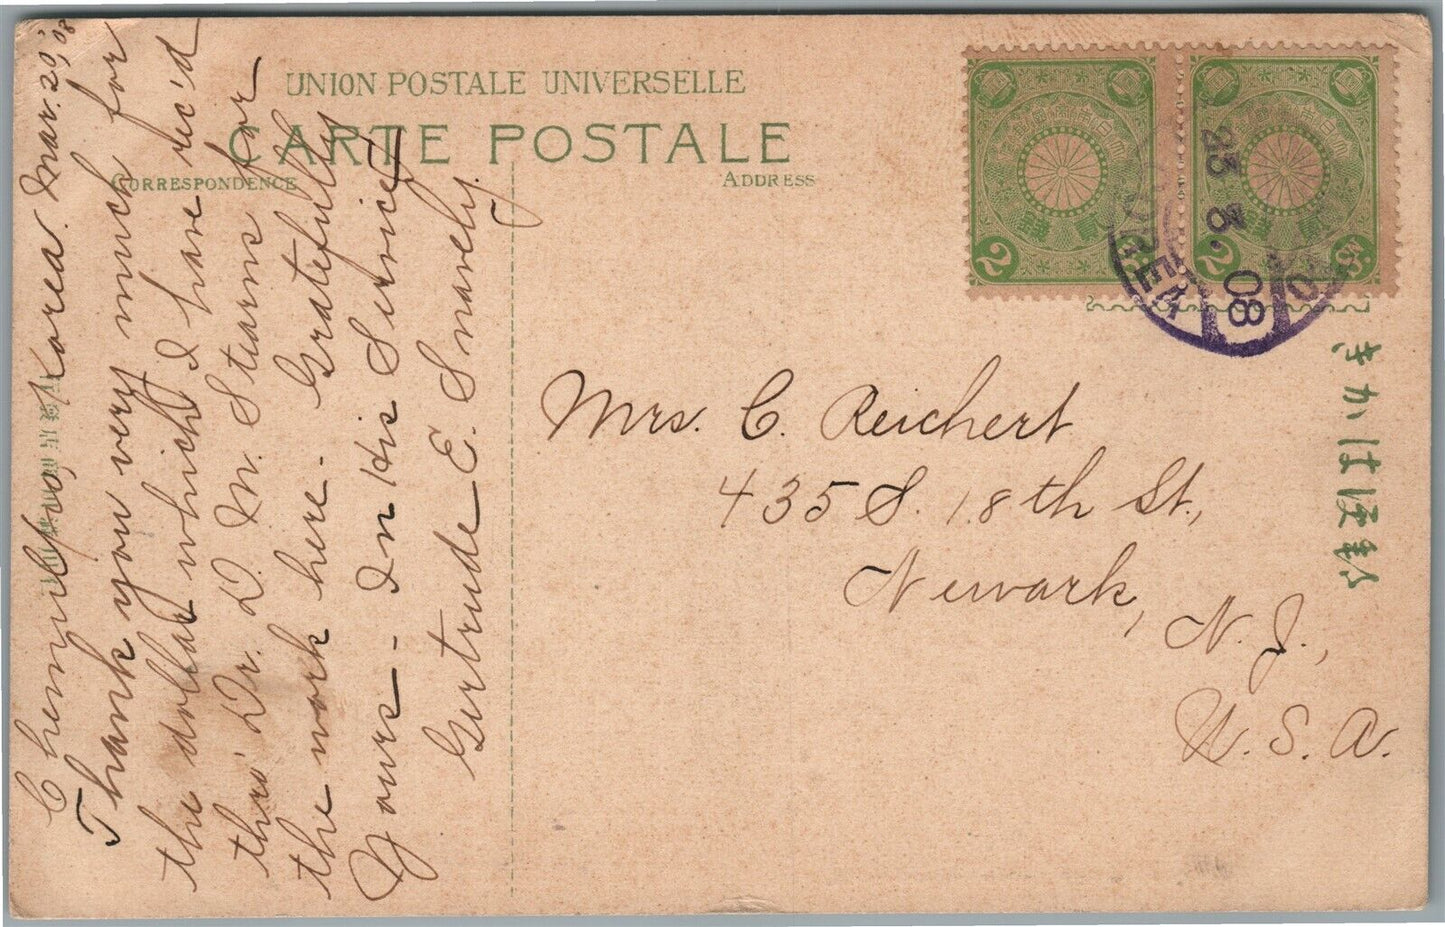 UNION POSTALE UNIVERSELLE
CARTE POSTALE
CORRESPONDENCE
ADDRESS
Chemulpo, Korea. Mar. 20, '08
Thank you very much for
the dollar which I have rec'd
thro' Dr. D. M. Stearns for
the work here. Gratefully
Yours - In His Service,
Gertrude E. Snavely.
Mrs. C. Reichert
435 S. 18th St.,
Newark,
N. J.,
U. S. A.
きかは便郵
2 Sn.
2 Sn.
23 3. 08
COREA